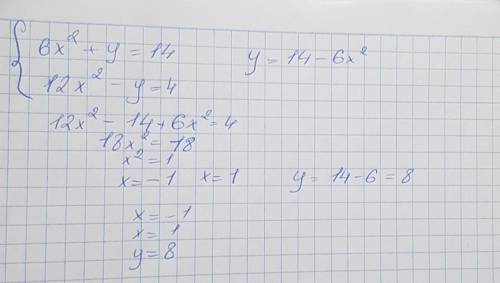 6x² + y = 14 y = 14 - 6x²
12x² - y = 4
12x² - 14 + 6x² = 4
18x² = 18
x² = 1
x = -1 x = 1 y = 14 - 6 = 8
x = -1
x = 1
y = 8